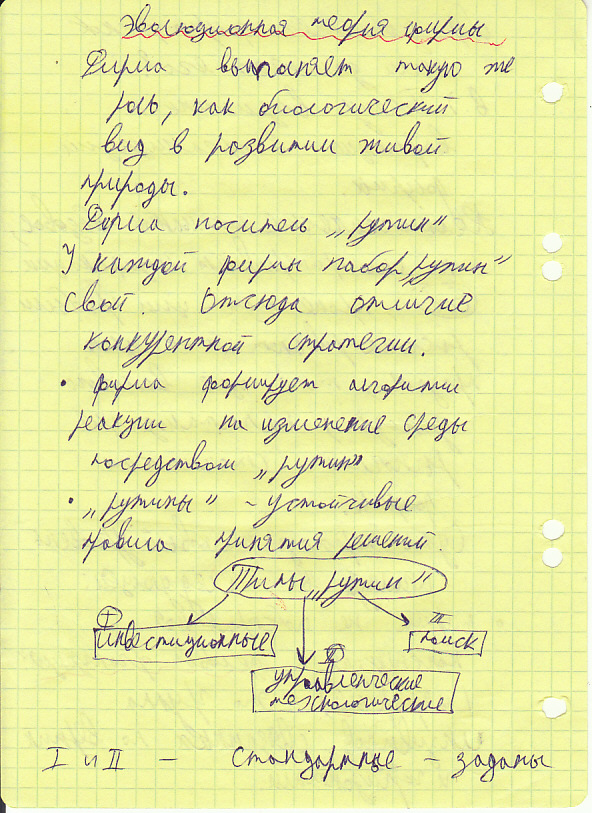 Эволюционная теория фирмы
Фирма выполняет такую же
роль, как биологический
вид в развитии живой
природы.
Фирма носитель „рутин"
У каждой фирмы набор „рутин"
свой. Отсюда отличие
конкурентной стратегии.
• фирма формирует алгоритм
реакции на изменение среды
посредством „рутин"
• „рутины" – устойчивые
правила принятия решений.
Типы „рутин"
I III
инвестиционные поиск
II
управленческие
технологические
I и II – стандартные – заданы